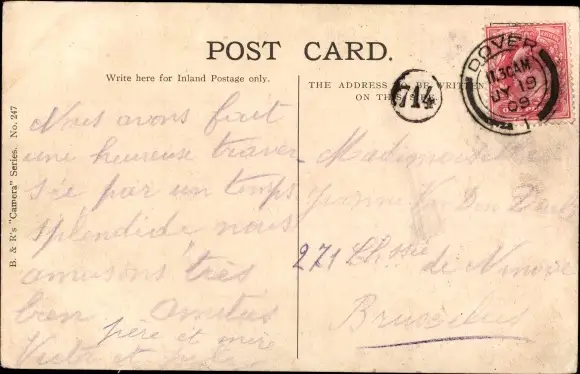 POST CARD.
Write here for Inland Postage only.
THE ADDRESS TO BE WRITTEN
ON THIS SIDE.
B. & R's "Camera" Series. No. 247
DOVER
11.30AM
JY 19
09
714
Nous avons fait
une heureuse traver-
sée par un temps
splendide nous
amusons très
bien Amitiés
père et mère
Victor et
Mademoiselle
Jeanne Van Den
271 Chssée de Ninove
Bruxelles